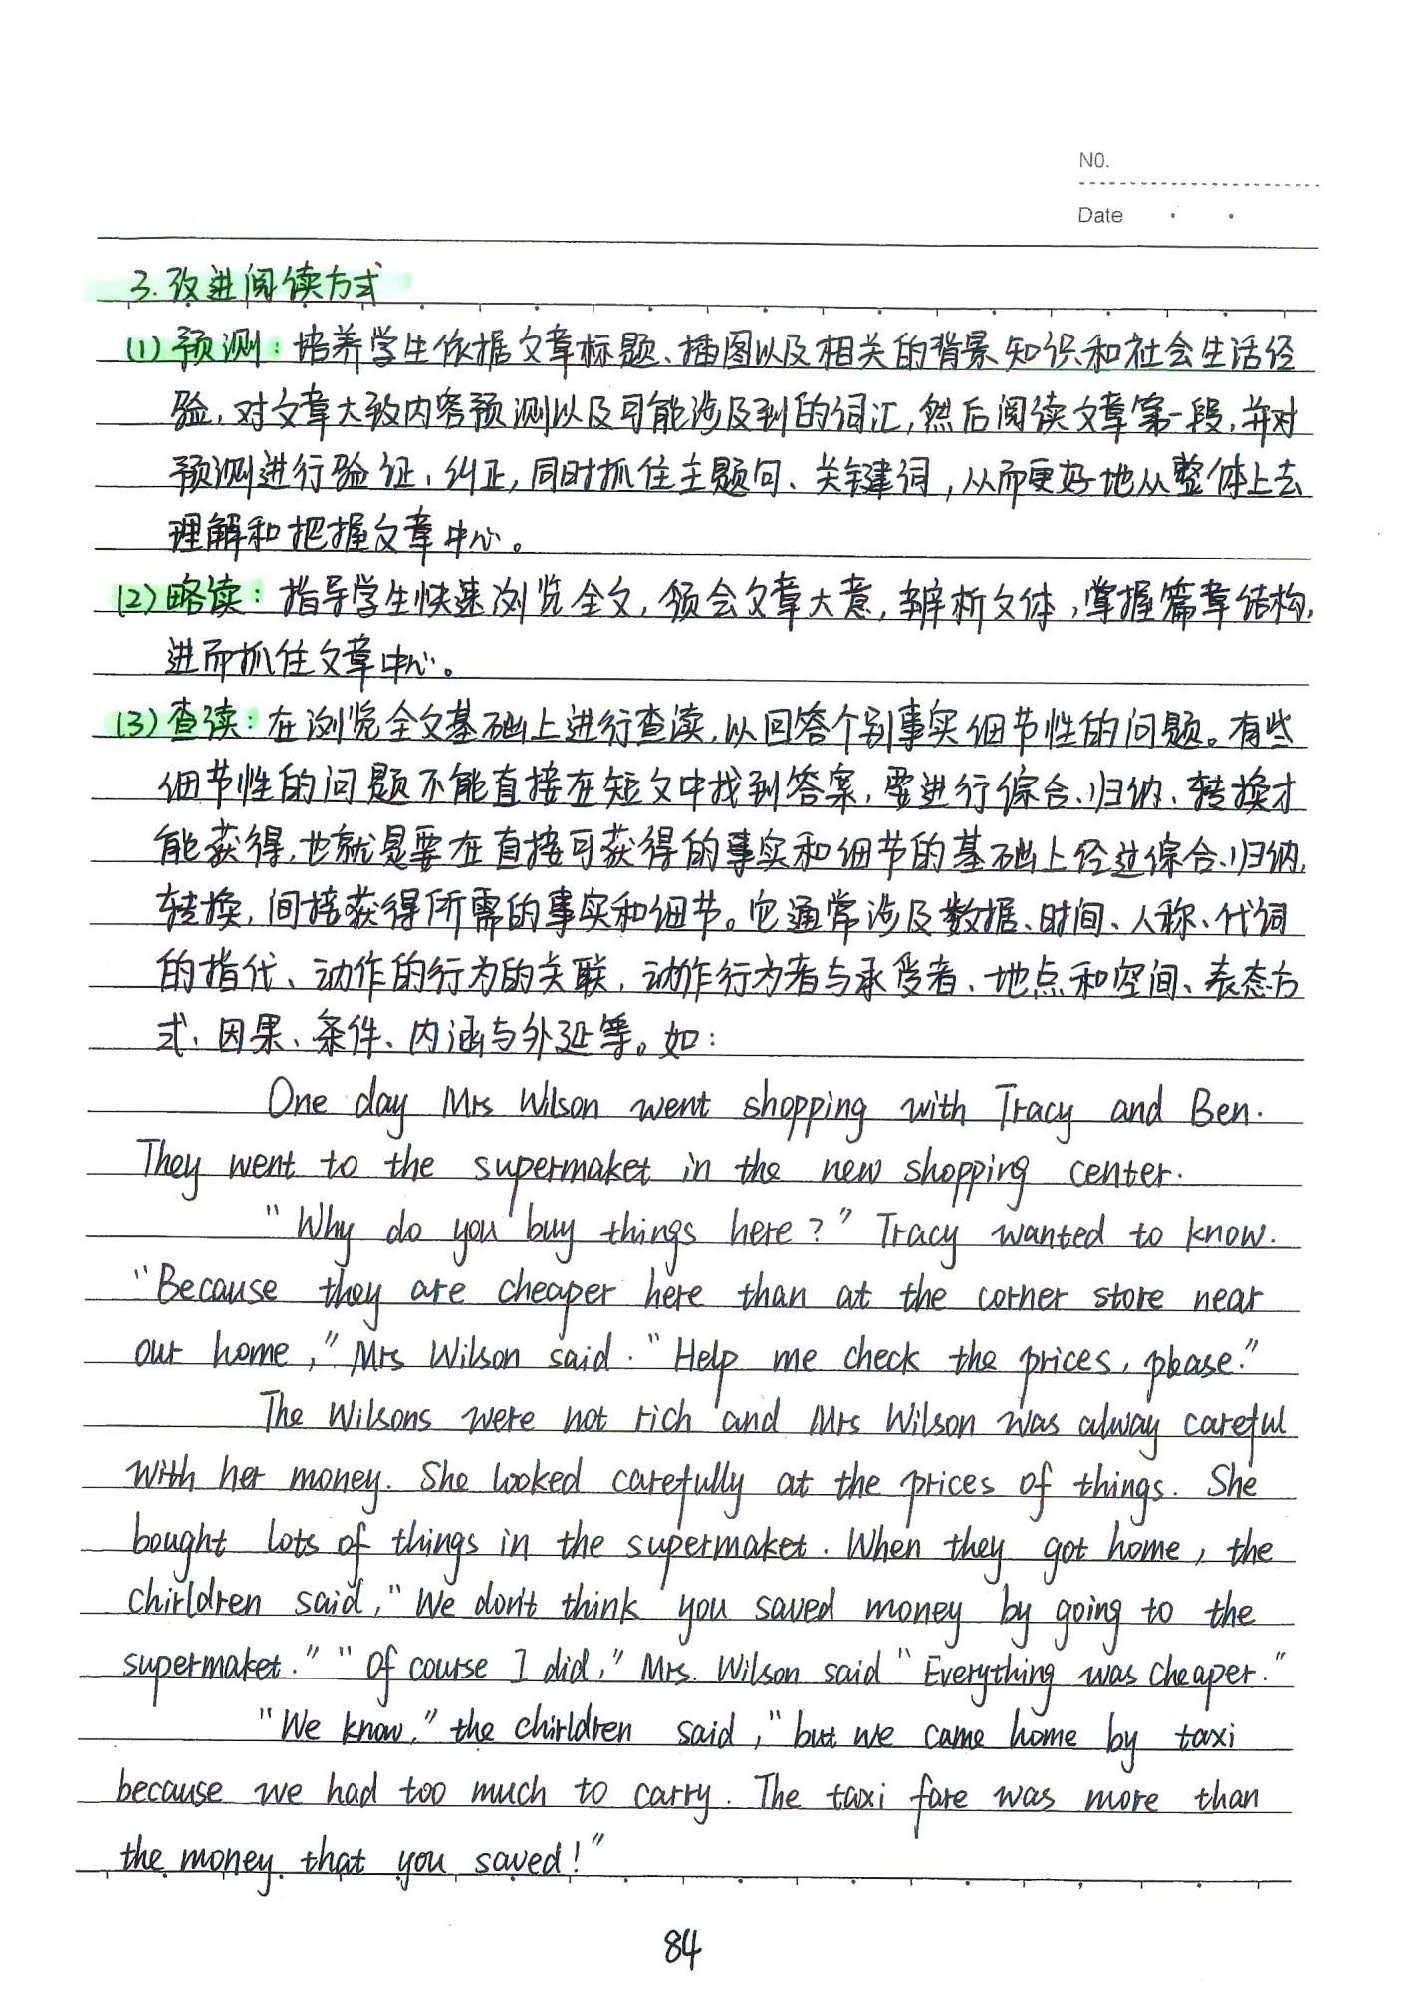 NO.
Date
3. 改进阅读方式
(1) 预测：培养学生依据文章标题、插图以及相关的背景知识和社会生活经
验，对文章大致内容预测以及可能涉及到的词汇，然后阅读文章第一段，并对
预测进行验证、纠正，同时抓住主题句、关键词，从而更好地从整体上去
理解和把握文章中心。
(2) 略读：指导学生快速浏览全文，领会文章大意，辨析文体，掌握篇章结构，
进而抓住文章中心。
(3) 查读：在浏览全文基础上进行查读，以回答个别事实细节性的问题。有些
细节性的问题不能直接在短文中找到答案，要进行综合、归纳、转换才
能获得，也就是要在直接可获得的事实和细节的基础上经过综合、归纳，
转换，间接获得所需的事实和细节。它通常涉及数据、时间、人称、代词
的指代、动作的行为的关联，动作行为者与承受者、地点和空间、表态方
式、因果、条件、内涵与外延等。如：
One day Mrs Wilson went shopping with Tracy and Ben.
They went to the supermaket in the new shopping center.
"Why do you buy things here?" Tracy wanted to know.
"Because they are cheaper here than at the corner store near
our home," Mrs Wilson said. "Help me check the prices, please."
The Wilsons were not rich and Mrs Wilson was alway careful
with her money. She looked carefully at the prices of things. She
bought lots of things in the supermaket. When they got home, the
chirldren said, "We don't think you saved money by going to the
supermaket." "Of course I did," Mrs. Wilson said "Everything was cheaper."
"We know," the chirldren said, "but we came home by taxi
because we had too much to carry. The taxi fare was more than
the money that you saved!"
84